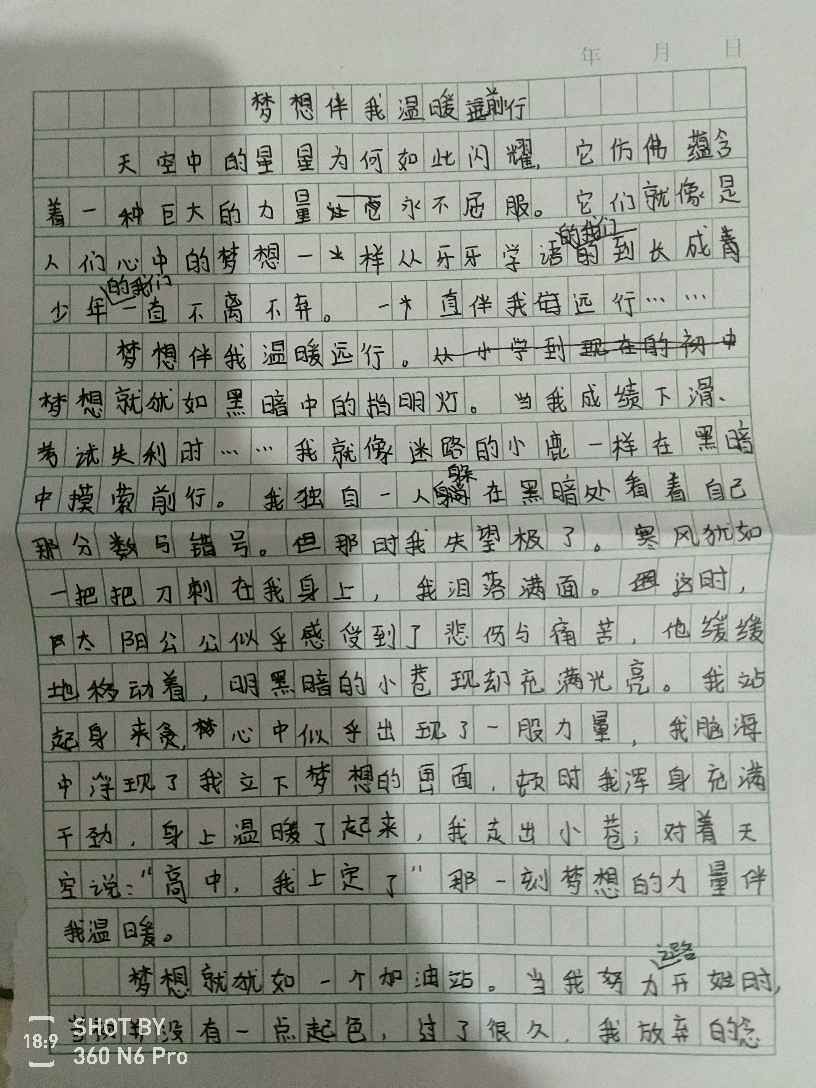 年 月 日
梦想伴我温暖前行
天空中的星星为何如此闪耀，它仿佛蕴含
着一种巨大的力量永不屈服。它们就像是
人们心中的梦想一样从牙牙学语的我们到长成青
少年的我们一直不离不弃。一直伴我远行……
梦想伴我温暖远行。从小学到现在的初中
梦想就犹如黑暗中的指明灯。当我成绩下滑、
考试失利时……我就像迷路的小鹿一样在黑暗
中摸索前行。我独自一人躲在黑暗处看着自己
那分数与错号。但那时我失望极了。寒风犹如
一把把刀刺在我身上，我泪落满面。这时，
太阳公公似乎感受到了悲伤与痛苦，他缓缓
地移动着，明黑暗的小巷现却充满光亮。我站
起身来，心中似乎出现了一股力量，我脑海
中浮现了我立下梦想的画面，顿时我浑身充满
干劲，身上温暖了起来，我走出小巷；对着天
空说：“高中，我上定了”那一刻梦想的力量伴
我温暖。
梦想就犹如一个加油站。当我努力开始时，
没有一点起色，过了很久，我放弃的念
18:9 SHOT BY
360 N6 Pro